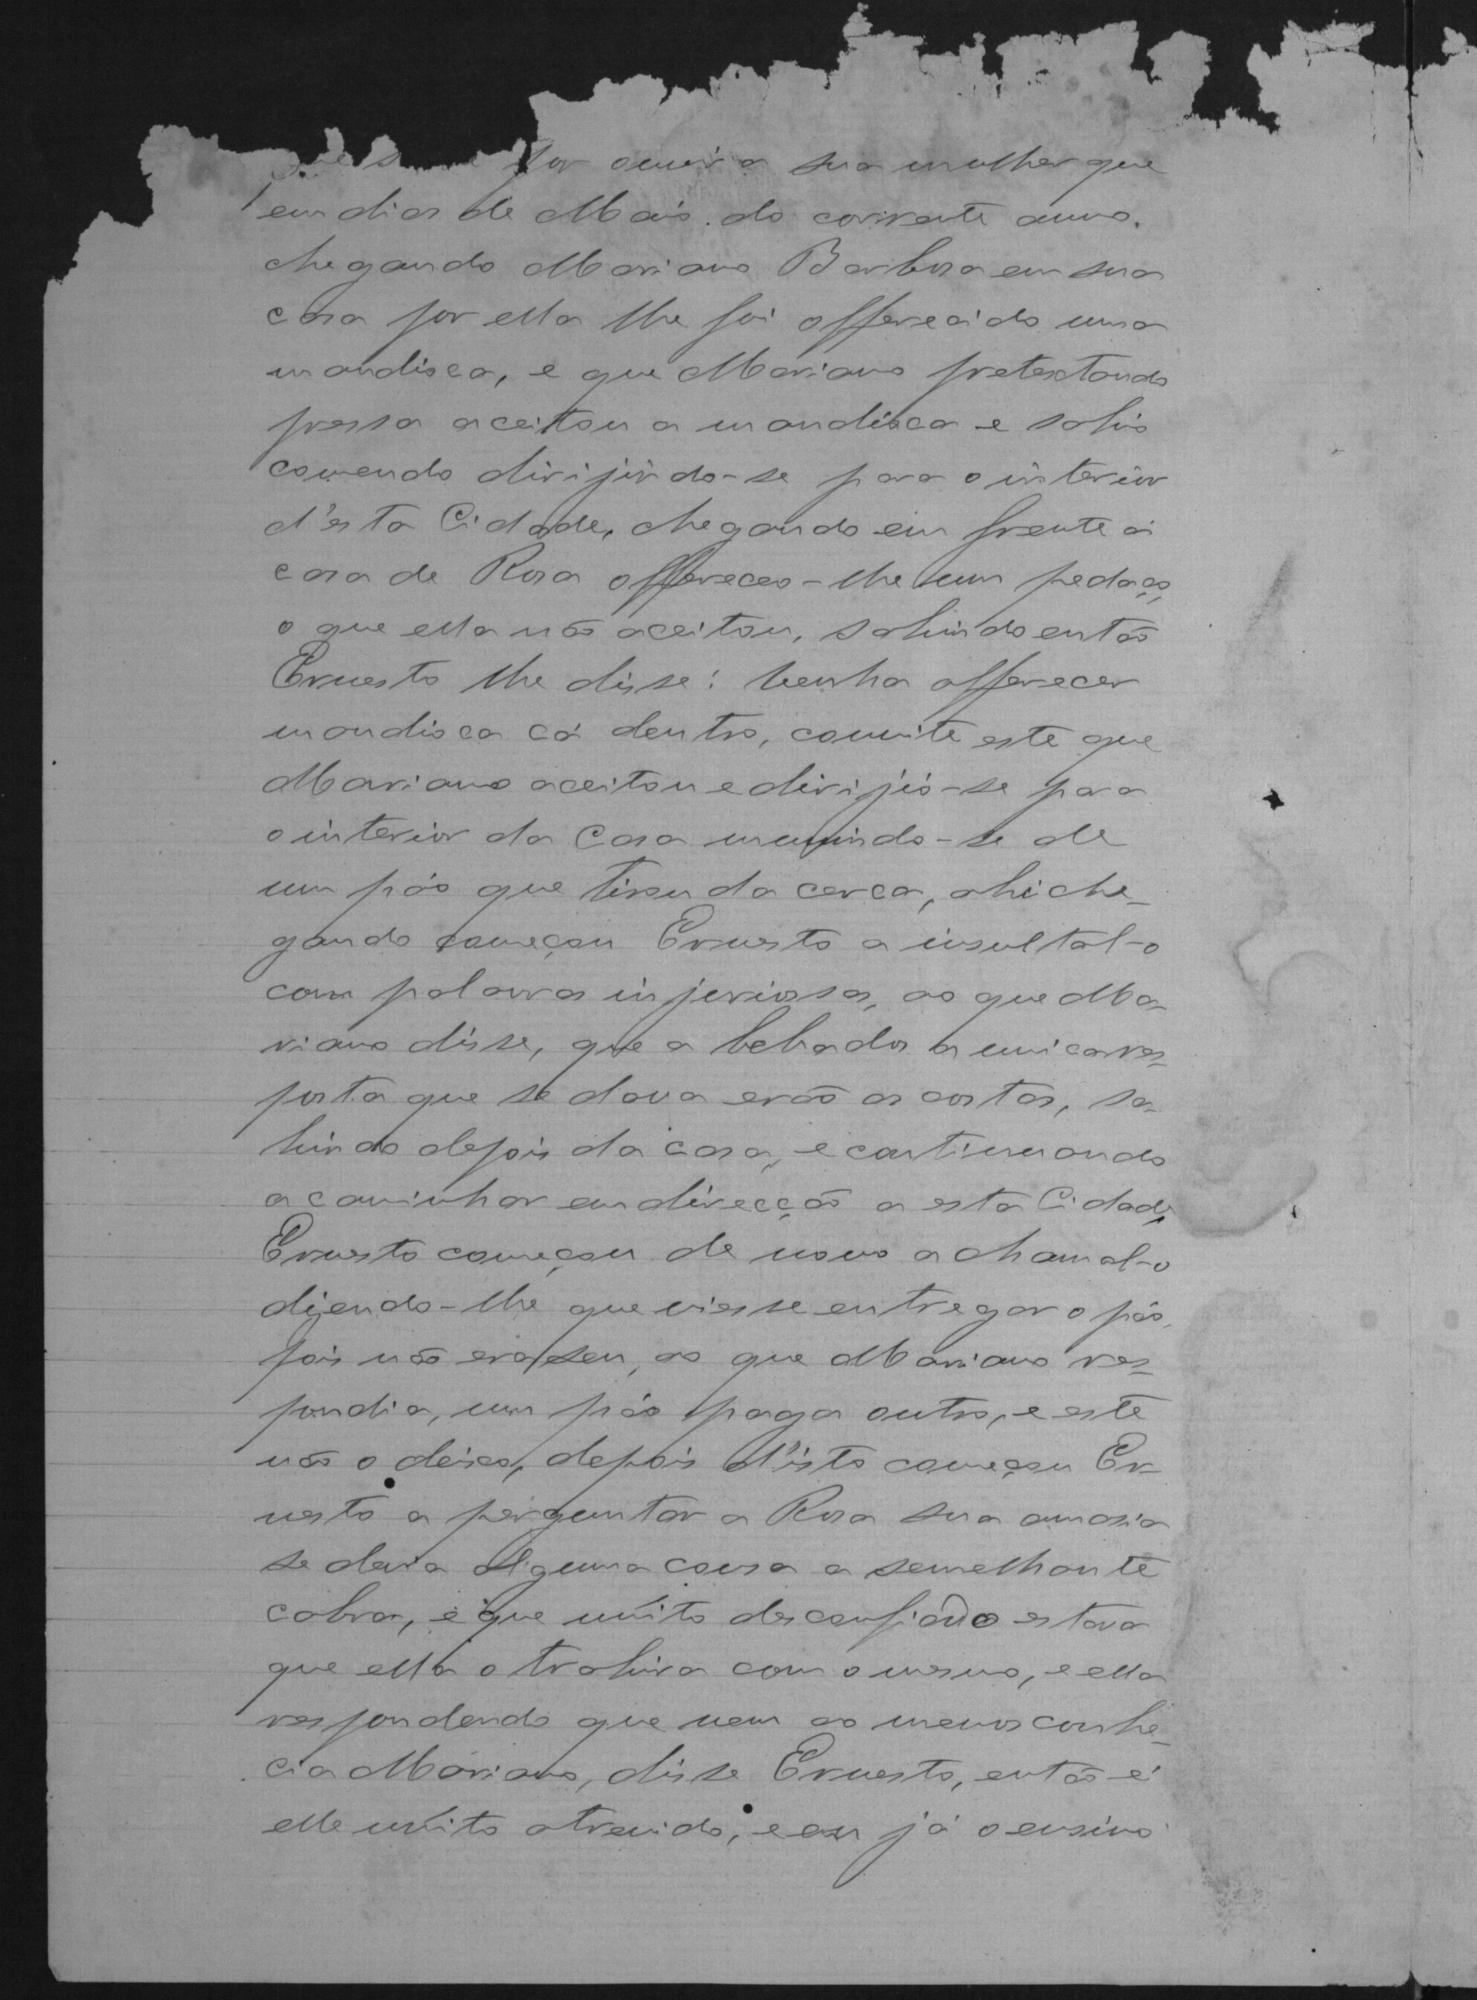 por ouvir a sua mulher que
em dias de Maio do corrente anno,
chegando Mariano Barbosa em sua
casa por ella lhe foi offerecido uma
mandioca, e que Mariano pretextando
pressa aceitou a mandioca e sahio
comendo dirijindo-se para o interior
d'esta Cidade, chegando em frente a
casa de Rosa offereceo-lhe um pedaço,
o que ella não aceitou, sahindo então
Ernesto lhe disse: venha offerecer
mandioca cá dentro, convite este que
Mariano aceitou e dirijio-se para
o interior da casa munindo-se de
um páo que tirou da cerca, ahi che-
gando começou Ernesto a insultal-o
com palavras injuriosas, ao que Ma-
riano disse, que a bebados a unica res-
posta que se dava erão as costas, sa-
hindo depois da casa, e continuando
a caminhar em direcção a esta Cidade,
Ernesto começou de novo a chamal-o
dizendo-lhe que viesse entregar o páo,
pois não era seu, ao que Mariano res-
pondia, um páo paga outro, e este
não o deixo, depois d'isto começou Er-
nesto a perguntar a Rosa sua amasia
se devia alguma cousa a semelhante
cabra, e que muito desconfiado estava
que ella o trahira com o mesmo, e ella
respondendo que nem ao menos conhe-
cia Mariano, disse Ernesto, então é
elle muito atrevido, e eu já o ensino